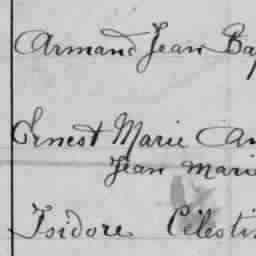 Armand Jean Bap
Ernest Marie An
Jean Marie
Isidore Célestin